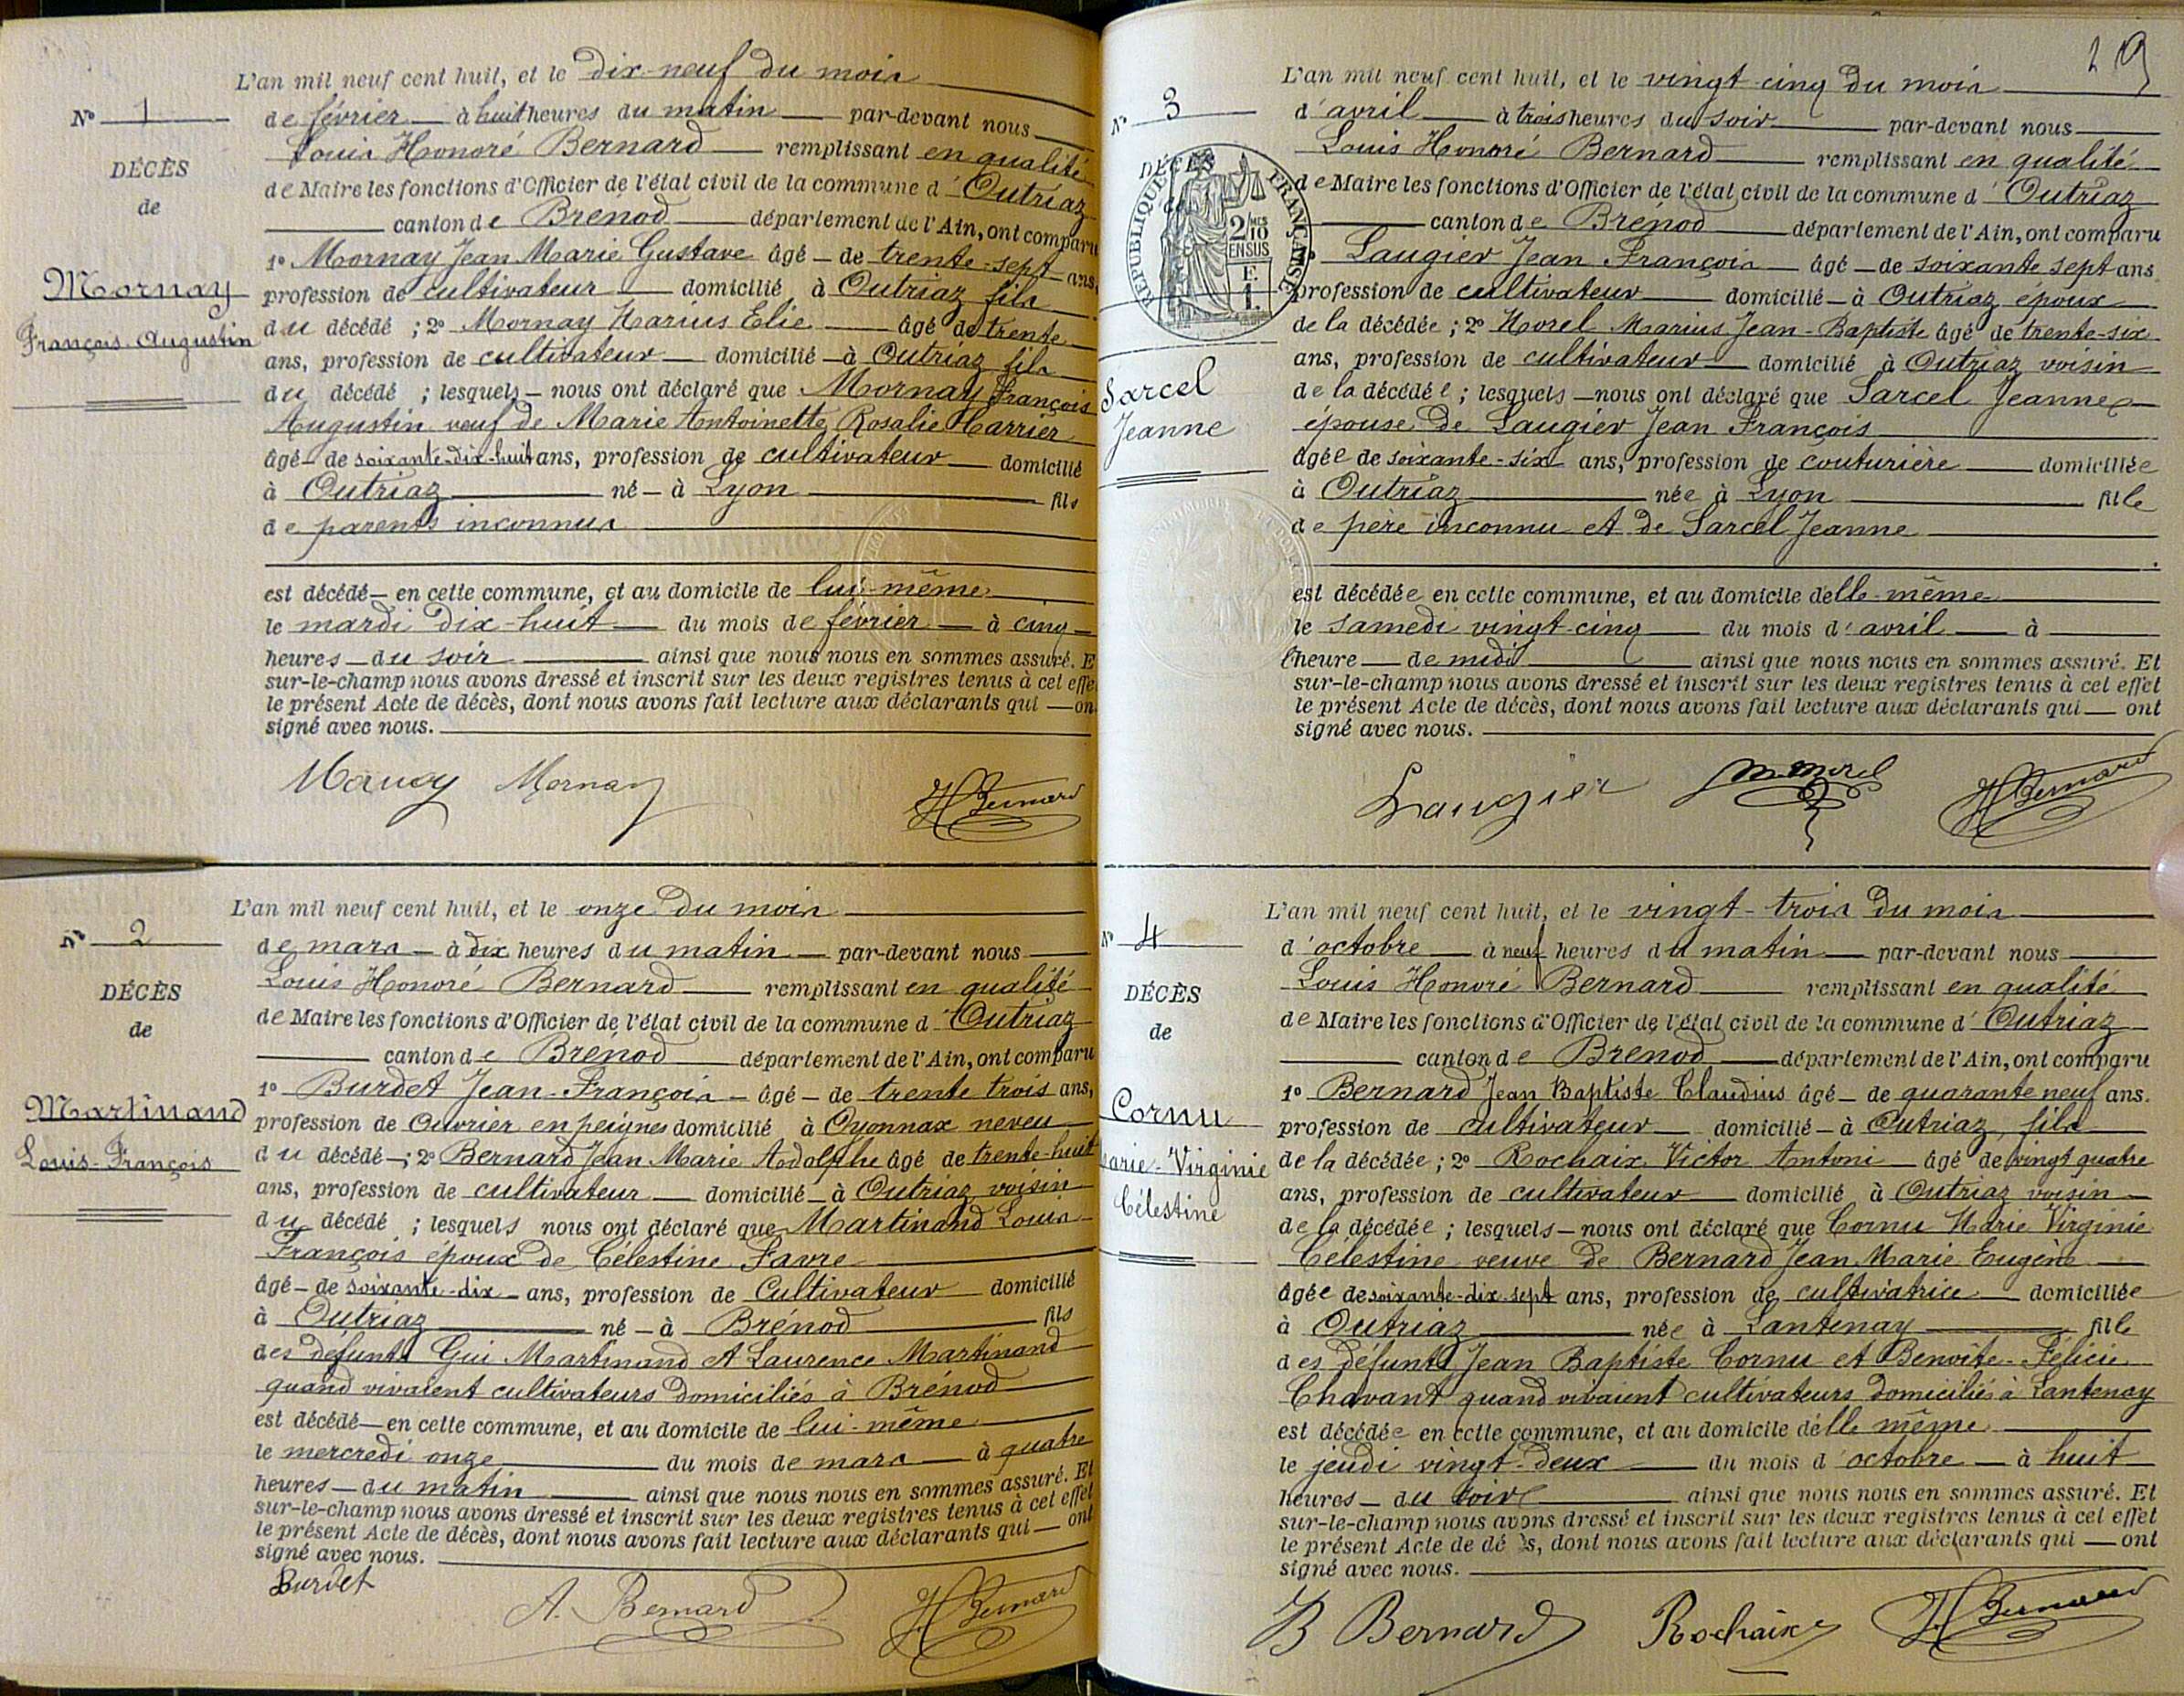 L'an mil neuf cent huit, et le dix-neuf du mois
N° 1
de février à huit heures du matin par-devant nous
Louis Honoré Bernard remplissant en qualité
DÉCÈS
de Maire les fonctions d'Officier de l'état civil de la commune d'Outriaz
de
canton de Brénod département de l'Ain, ont comparu
1° Mornay Jean Marie Gustave âgé de trente-sept ans,
Mornay
profession de cultivateur domicilié à Outriaz fils
François-Augustin
du décédé ; 2° Mornay Marius Elie âgé de trente
ans, profession de cultivateur domicilié à Outriaz fils
du décédé ; lesquels nous ont déclaré que Mornay François
Augustin veuf de Marie Antoinette Rosalie Carrier
âgé de soixante-dix-huit ans, profession de cultivateur domicilié
à Outriaz né à Lyon fils
de parents inconnus
est décédé en cette commune, et au domicile de lui-même
le mardi dix-huit du mois de février à cinq
heures du soir ainsi que nous nous en sommes assuré. E
sur-le-champ nous avons dressé et inscrit sur les deux registres tenus à cet effe
le présent Acte de décès, dont nous avons fait lecture aux déclarants qui on
signé avec nous.
Mornay
HBernard
L'an mil neuf cent huit, et le onze du mois
N° 2
de mars à dix heures du matin par-devant nous
Louis Honoré Bernard remplissant en qualité
DÉCÈS
de Maire les fonctions d'Officier de l'état civil de la commune d'Outriaz
de
canton de Brénod département de l'Ain, ont comparu
1° Burdet Jean-François âgé de trente trois ans,
Martinand
profession de Ouvrier en peignes domicilié à Oyonnax neveu
Louis-François
du décédé ; 2° Bernard Jean Marie Adolphe âgé de trente-huit
ans, profession de cultivateur domicilié à Outriaz voisin
du décédé ; lesquels nous ont déclaré que Martinand Louis
François époux de Célestine Favre
âgé de soixante-dix ans, profession de Cultivateur domicilié
à Outriaz né à Brénod fils
des défunts Gui Martinand et Laurence Martinand
quand vivaient cultivateurs domiciliés à Brénod
est décédé en cette commune, et au domicile de lui-même
le mercredi onze du mois de mars à quatre
heures du matin ainsi que nous nous en sommes assuré. Et
sur-le-champ nous avons dressé et inscrit sur les deux registres tenus à cet effet
le présent Acte de décès, dont nous avons fait lecture aux déclarants qui ont
signé avec nous.
Burdet
A. Bernard
HBernard
29
L'an mil neuf cent huit, et le vingt-cinq du mois
N° 3
d'avril à trois heures du soir par-devant nous
Louis Honoré Bernard remplissant en qualité
DÉCÈS
de
RÉPUBLIQUE FRANÇAISE
2 MES 10 EN SUS
F. 1.
de Maire les fonctions d'Officier de l'état civil de la commune d'Outriaz
canton de Brénod département de l'Ain, ont comparu
Laugier Jean François âgé de soixante sept ans
profession de cultivateur domicilié à Outriaz époux
de la décédée ; 2° Morel Marius Jean-Baptiste âgé de trente-six
ans, profession de cultivateur domicilié à Outriaz voisin
Sarcel
de la décédée ; lesquels nous ont déclaré que Sarcel Jeanne
Jeanne
épouse de Laugier Jean François
âgée de soixante-six ans, profession de couturière domiciliée
à Outriaz née à Lyon fille
de père inconnu et de Sarcel Jeanne
est décédée en cette commune, et au domicile delle-même
le samedi vingt-cinq du mois d'avril à
l'heure de midi ainsi que nous nous en sommes assuré. Et
sur-le-champ nous avons dressé et inscrit sur les deux registres tenus à cet effet
le présent Acte de décès, dont nous avons fait lecture aux déclarants qui ont
signé avec nous.
Laugier
M. Morel
HBernard
L'an mil neuf cent huit, et le vingt-trois du mois
N° 4
d'octobre à neuf heures du matin par-devant nous
Louis Honoré Bernard remplissant en qualité
DÉCÈS
de Maire les fonctions d'Officier de l'état civil de la commune d'Outriaz
de
canton de Brénod département de l'Ain, ont comparu
1° Bernard Jean Baptiste Claudius âgé de quarante neuf ans.
Cornu
profession de cultivateur domicilié à Outriaz, fils
arie-Virginie
de la décédée ; 2° Rochaix Victor Antoni âgé de vingt quatre
Célestine
ans, profession de cultivateur domicilié à Outriaz voisin
de la décédée ; lesquels nous ont déclaré que Cornu Marie Virginie
Célestine veuve de Bernard Jean Marie Eugène
âgée de soixante-dix-sept ans, profession de cultivatrice domiciliée
à Outriaz née à Lantenay fille
des défunts Jean Baptiste Cornu et Benoite-Félicie
Chavant quand vivaient cultivateurs domiciliés à Lantenay
est décédée en cette commune, et au domicile délle même
le jeudi vingt-deux du mois d'octobre à huit
heures du soir ainsi que nous nous en sommes assuré. Et
sur-le-champ nous avons dressé et inscrit sur les deux registres tenus à cet effet
le présent Acte de dé s, dont nous avons fait lecture aux déclarants qui ont
signé avec nous.
B Bernard
Rochaix
HBernard